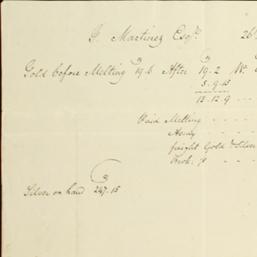 J. Martinez Esqr. 26
Gold before Melting 19.6 After 19.2 Wt.
5.9.15
13.12.9
Paid Melting
Assay
freight Gold & Silver
Silver on hand 247.15